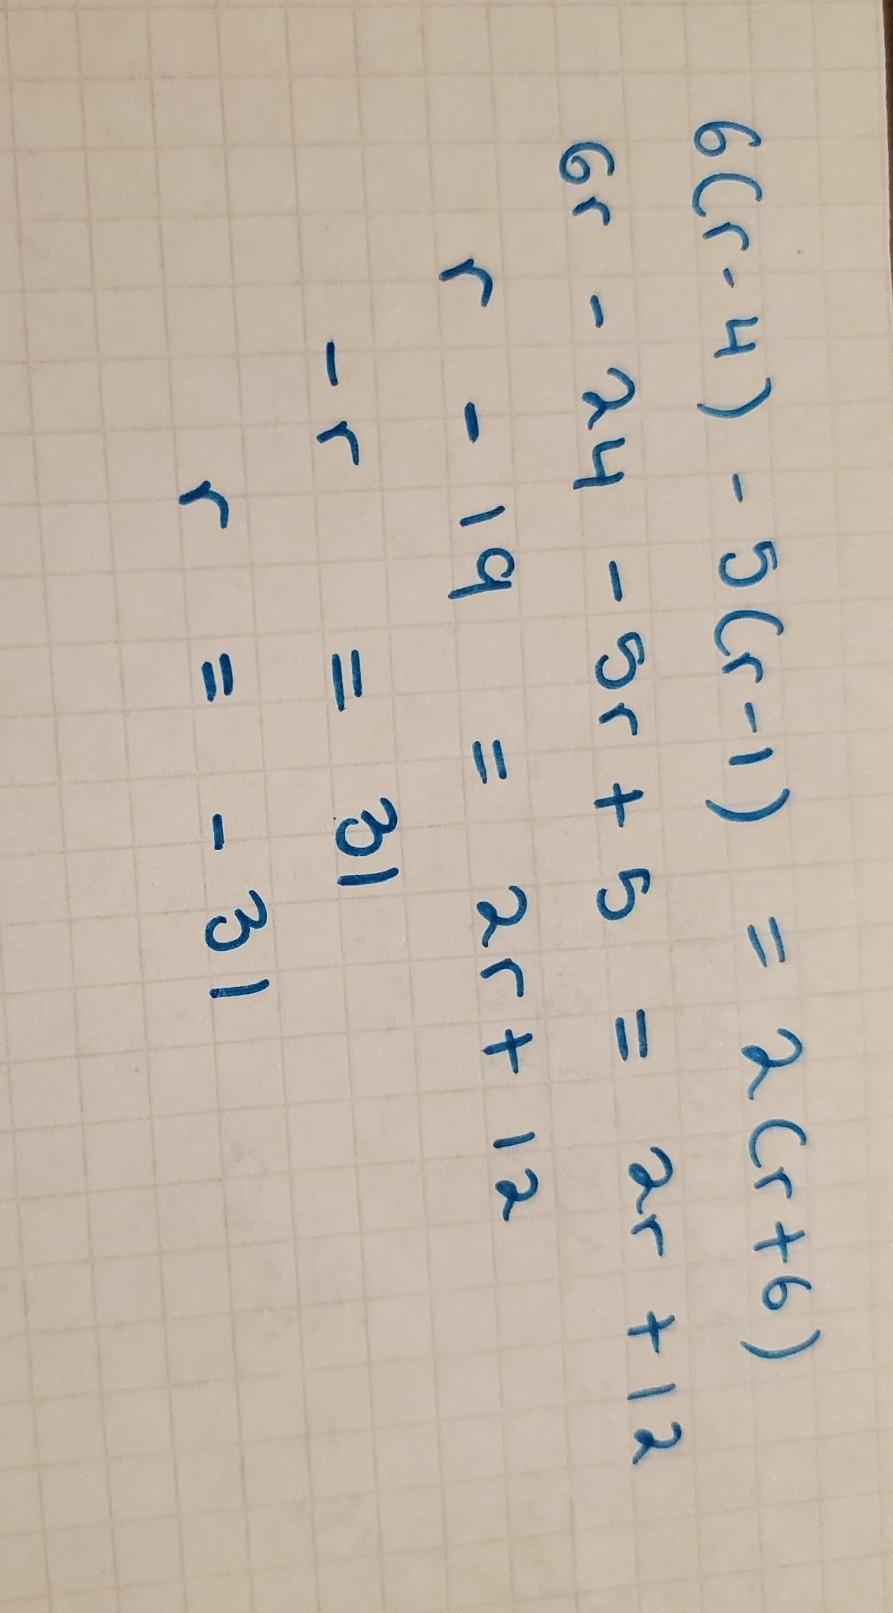 6(r-4) - 5(r-1) = 2(r+6)
6r - 24 - 5r + 5 = 2r + 12
r - 19 = 2r + 12
-r = 31
r = -31